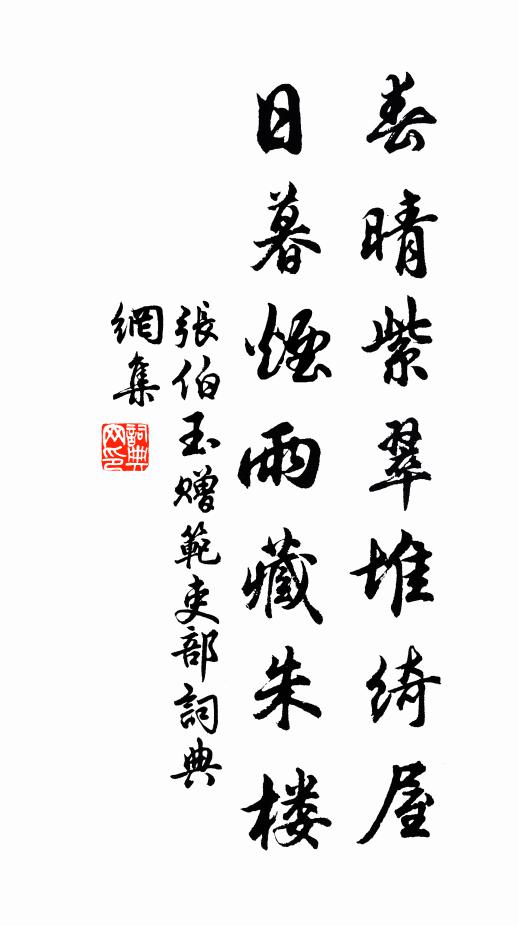 春晴紫翠堆綺屋
日暮煙雨藏朱楼
張伯玉贈範吏部詞典
網集
詞典
网印